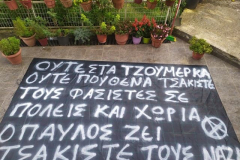 ΟΥΤΕ ΣΤΑ ΤΖΟΥΜΕΡΚΑ
ΟΥΤΕ ΠΟΥΘΕΝΑ ΤΣΑΚΙΣΤΕ
ΤΟΥΣ ΦΑΣΙΣΤΕΣ ΣΕ
ΠΟΛΕΙΣ ΚΑΙ ΧΩΡΙΑ
Ο ΠΑΥΛΟΣ ΖΕΙ
ΤΣΑΚΙΣΤΕ ΤΟΥΣ ΝΑΖΙ